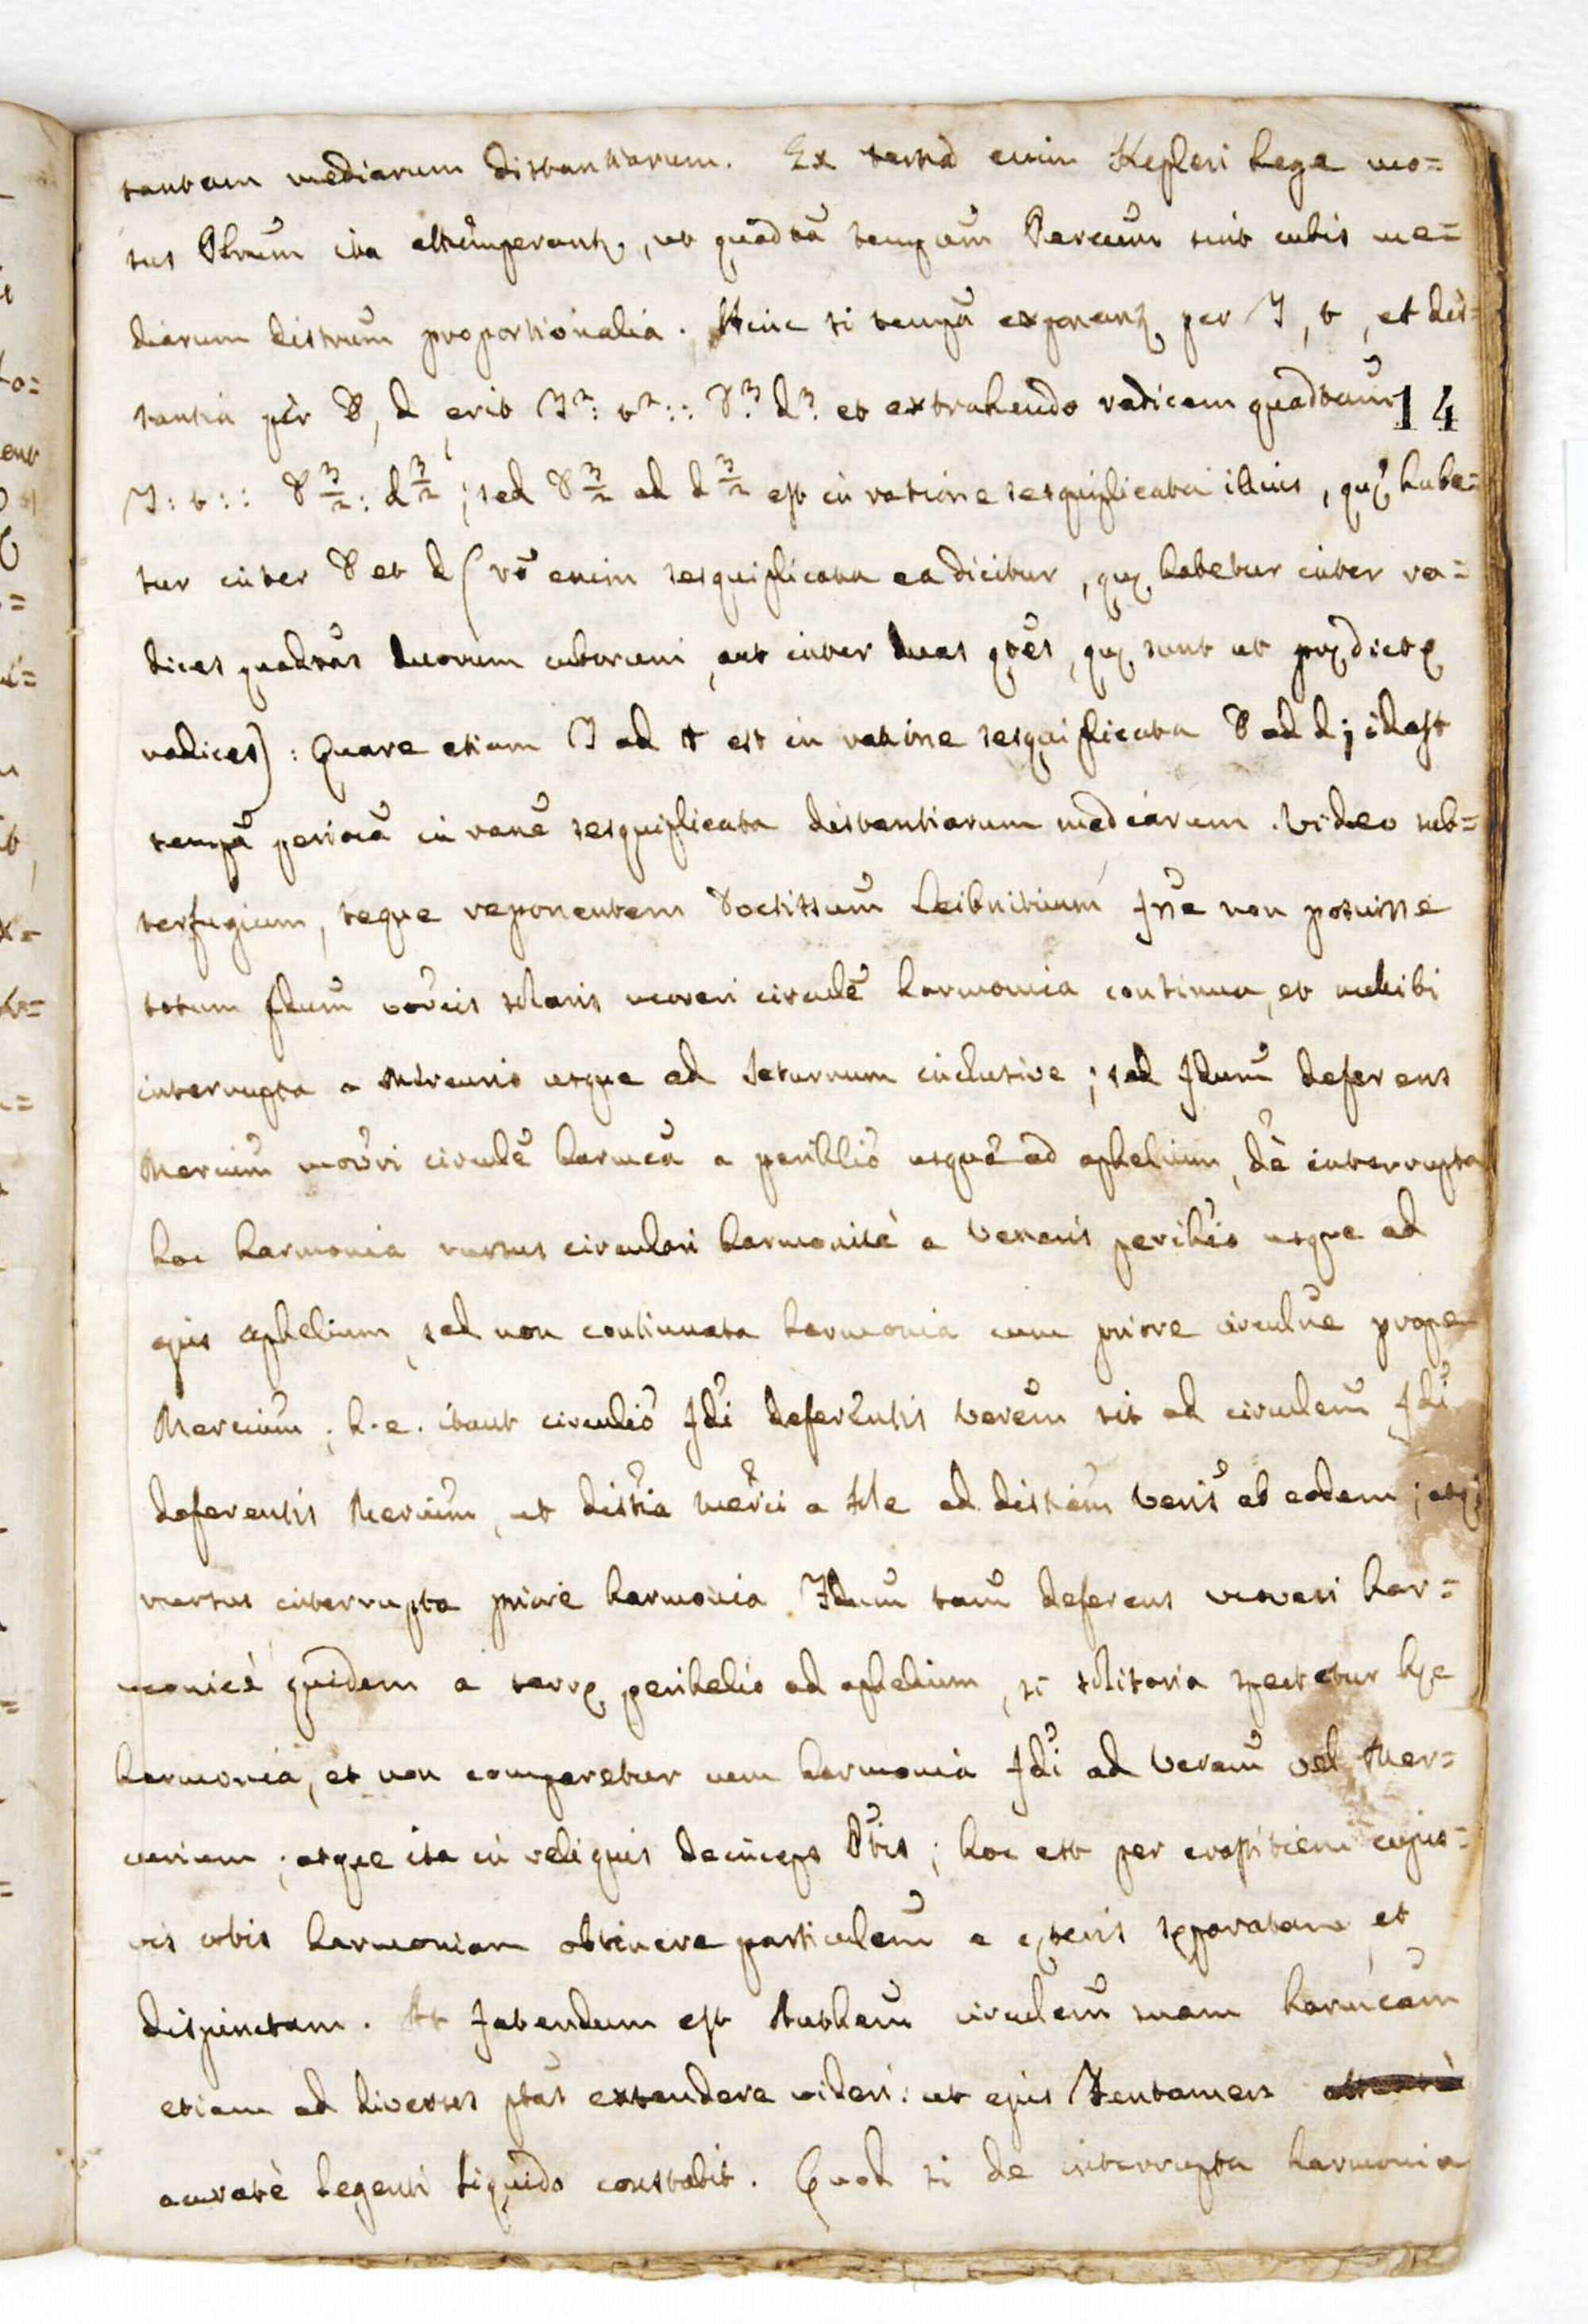 tantum mediarum distantiarum. Ex tertia enim Kepleri lege mo=
tus ita , ut tempũm sint cubis me=
diarum distrũm proportionalia. Hinc si tempã exponant per T, t, et dis=
tantia per D, d erit T²: t²:: D³: d³. et extrahendo radicem quadtam̃ 14
T: t:: D 3/2: d 3/2; sed D 3/2 ad d 3/2 est in ratione sesquiplicata illius, quę habe=
tur inter D et d (rõ enim sesquiplicata ea dicitur, quę habetur inter ra=
dices quadtãs duorum cuborum, aut inter duas qtẽs, quę sunt ut prędictę
radices): Quare etiam T ad t est in ratione sesquiplicata D ad d; idest
tempã perioca in ranẽ sesquiplicata distantiarum mediarum. Video sub=
terfugium, teque reponentem Doctissum̃ Leibnitium fsse non potuisse
totum fluum̃ solaris moveri circulẽ harmonia continua, et nullibi
interrupta a Mercurio usque ad Saturnum inclusive; sed fldum̃ deferens
Mercium̃ movri circulẽ harmcã a perihlio usque ad aphelium, dè interrupta
hac harmonia rursus circulari harmonicè a Veneris perihlio usque ad
ejus aphelium, sed non continuata harmonia cum priore circulne prope
Mercium̃; h.e. itaut circulio fldi deferentis Verem̃ sit ad circulem̃ fldi
deferentis Mercium̃, ut distia Merci a sole ad distiam̃ Veris ab eodem; atq
rursus interrupta priore harmonia fldum̃ tam̃ deferens moveri har=
monicè quidem a terrę perihelio ad aphelium, si solitaria spectetur hęc
harmonia, et non comparetur cum harmonia fldi ad Verem̃ vel Mer=
curium; atque ita in reliquis deinceps; hoc est per crassitiem cujus=
vis orbis harmoniam obtinere particulem̃ a cęteris sęparatam et
disjunctam. At fatendum est Authem̃ circulem̃ suam harmcam̃
etiam ad diversos pltas extendere videri: ut ejus Tentamen
accuratè legenti liquido constabit. Quod si de interrupta harmonia